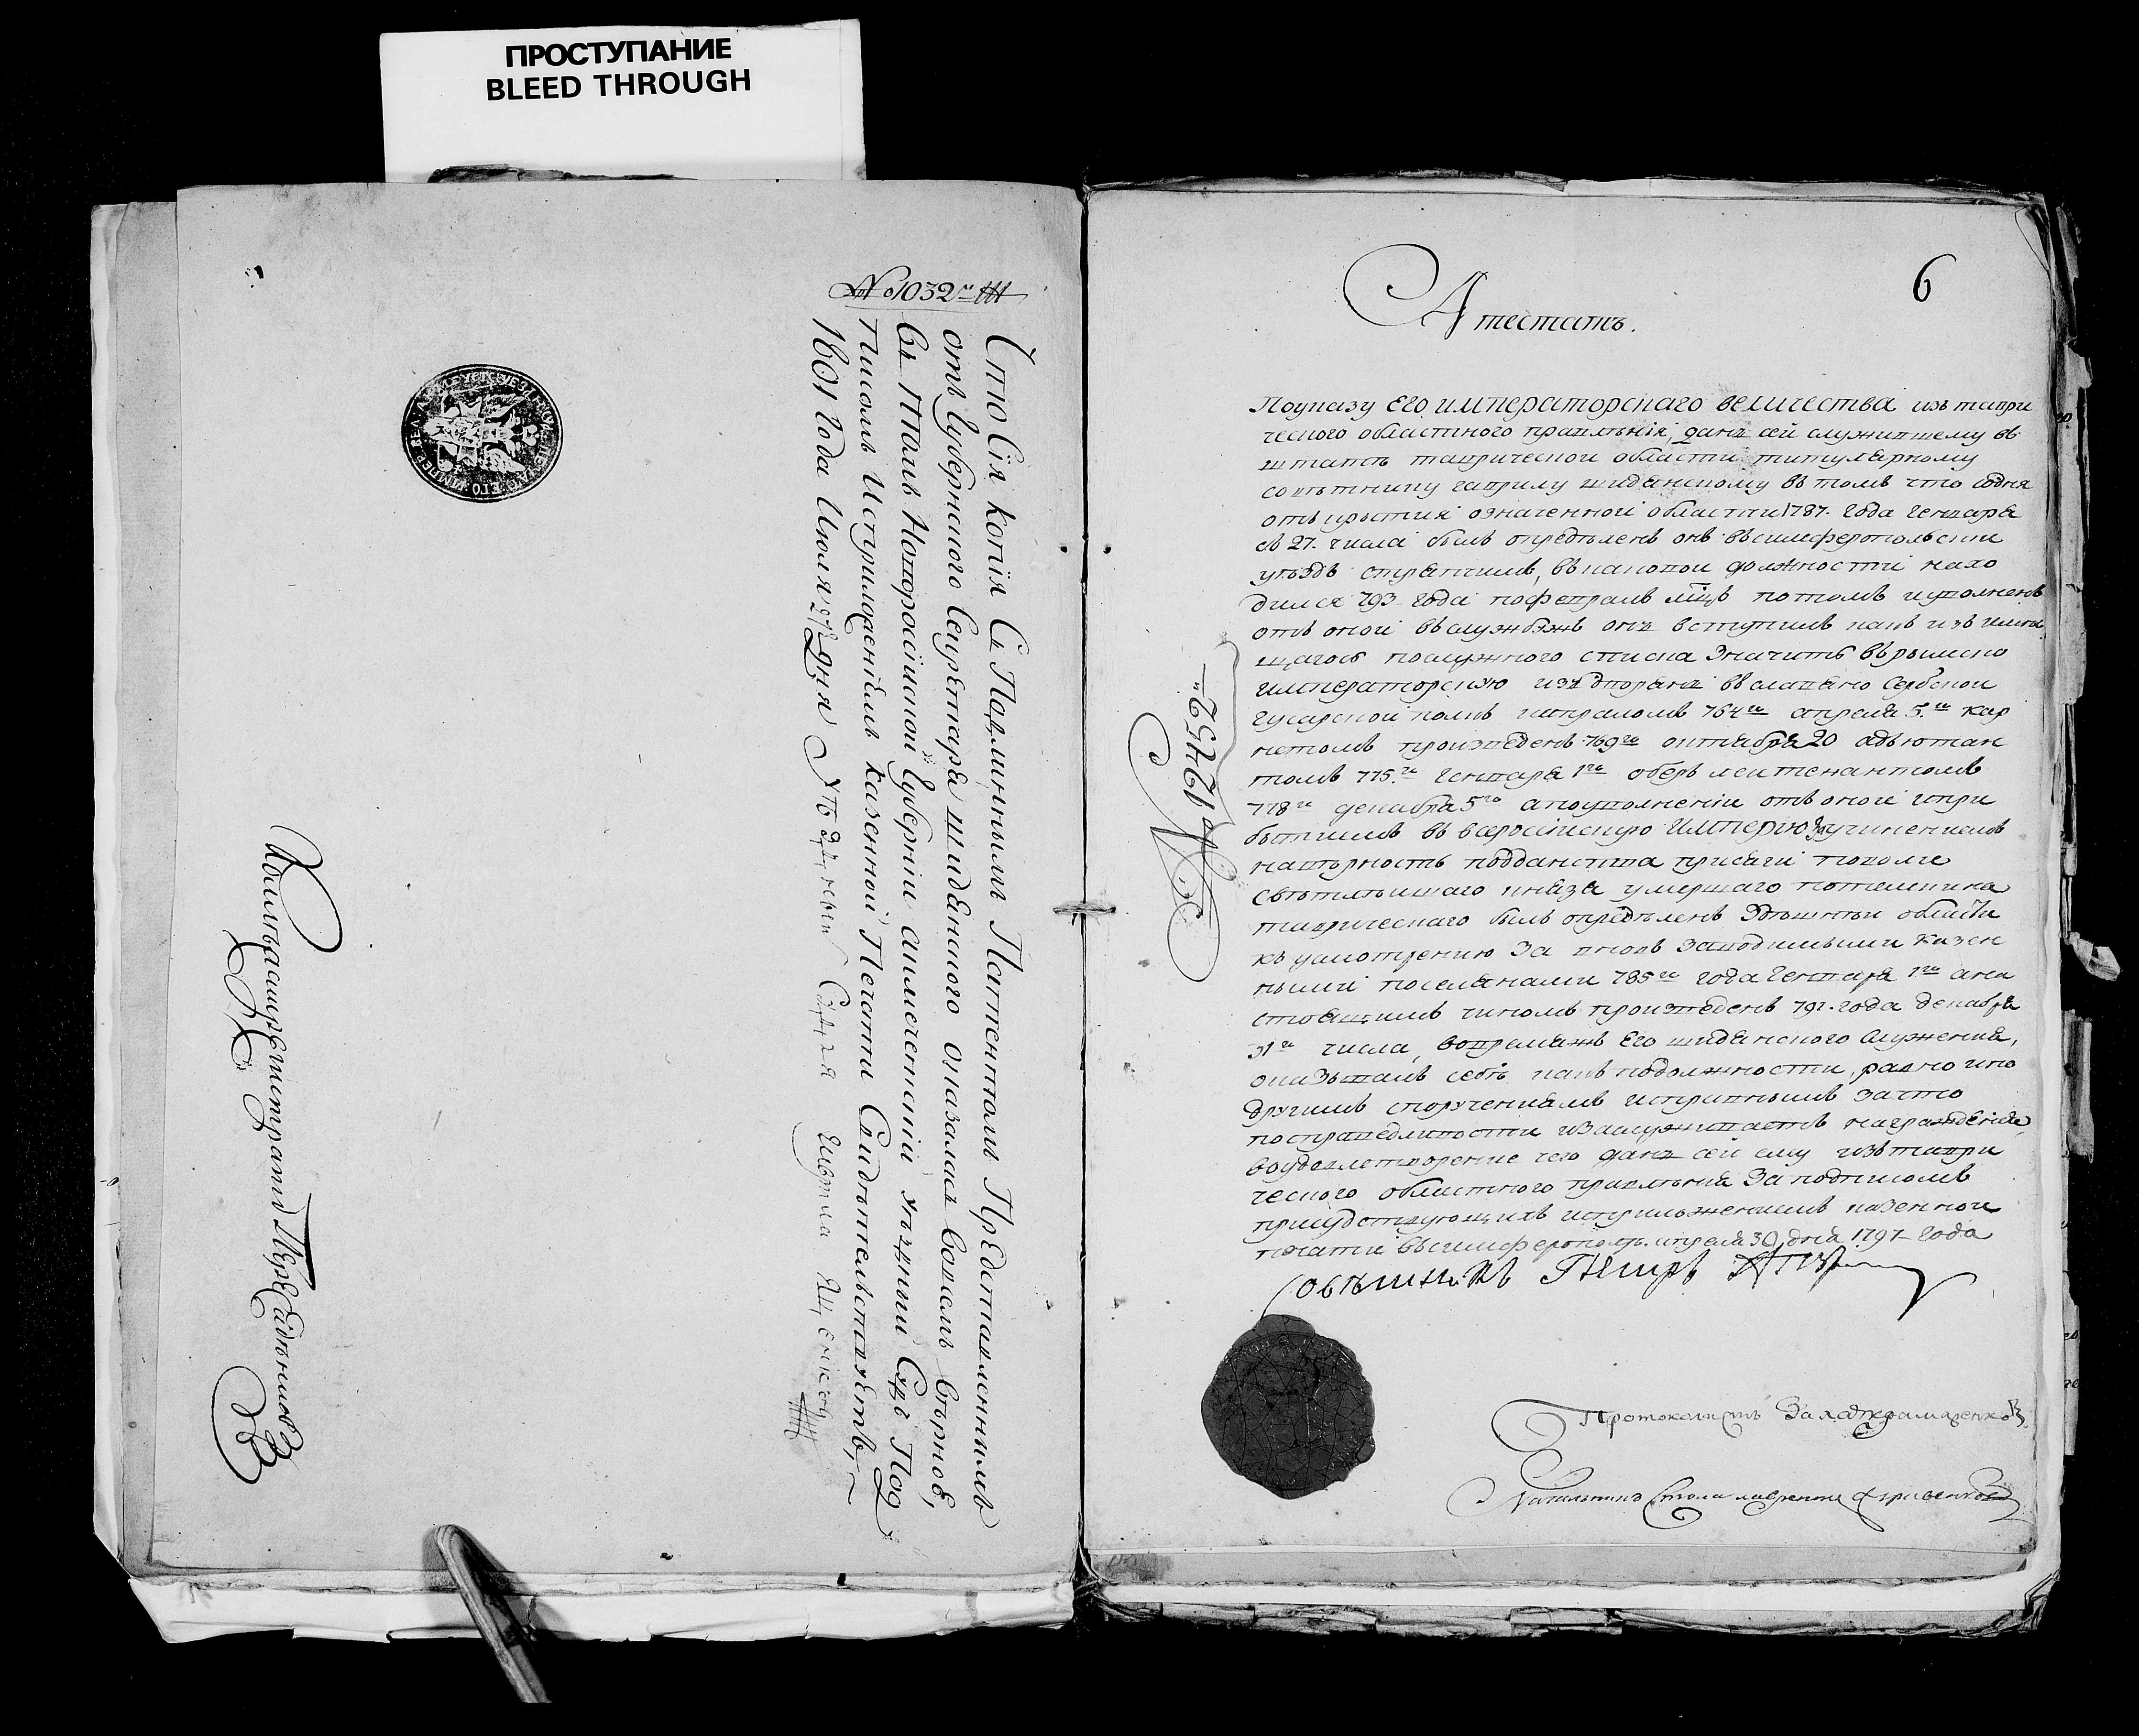 ПРОСТУПАНИЕ
BLEED THROUGH
№ 1032й
Сiю Сiя копiя Съ Подлиннымъ Патентомъ Представленнымъ
отъ Губернского Секретаря Шиданского оказалась Вовсемъ вѣрною,
Въ томъ Новороссiйской Губернiи уѣздный Судъ Под
писомъ И Съприложенiемъ казенной Печати Свидѣтельствуетъ,
1801 года Июля дня
6
Атестатъ.
Поуказу Его императорскаго величества изъ таври
ческого областного правленiя, данъ сей служившему въ
штатѣ таврической области титулярному
совѣтнику гаврилу шиданскому въ томъ что содня
открытия означенной области 1787. года генваря
съ 27. числа былъ опредѣленъ онъ въ симферопольскии
уѣздъ стряпчимъ, въ каковои должности нахо
дился 793 года пофевраль мцъ потомъ и уволненъ
отъ оной въ службужъ онъ вступилъ какъ изъ имѣю
щагось послужного списка значитъ въ римско
императорскую изъ дворянъ въ славяно сербской
гусарской полкъ капраломъ 764го апреля 5.го кор
нетомъ произведенъ 769го октября 20 адъютан
томъ 775.го генваря 1го оберъ леитенантомъ
778го декабря 5го апоуволненiи отъ оной ипри
бытiимъ въ всеросiискую Империю заучинениемъ
навѣрность подданства присяги поволе
свѣтлѣишаго князя умершаго потемкина
таврическаго былъ опредѣленъ здѣшнѣи области
къ усмотрению за вновь заводимыми казен
ными поселянами 785го года Генваря 1го ана
стоящимъ чиномъ произведенъ 791. года декабря
31го числа, вовремяжъ Его шиданского служения,
оказывалъ себя какъ подолжности, равно ипо
другимъ споручениямъ исправнымъ зачто
посправедливости изаслуживаетъ награждения,
воудовлетворение чего данъ сей ему изътаври
ческого областного правления За подписомъ
присудствующихъ исприложениемъ казенной
печати въсимферополѣ. апреля 30, дня 1797 года
Совѣтникъ Петръ
№ 12452
Протоколистъ
Начальникъ Стола лаврентий